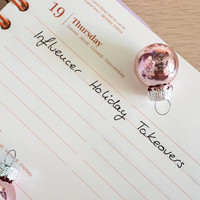 19 Thursday
Influencer Holiday Takeovers